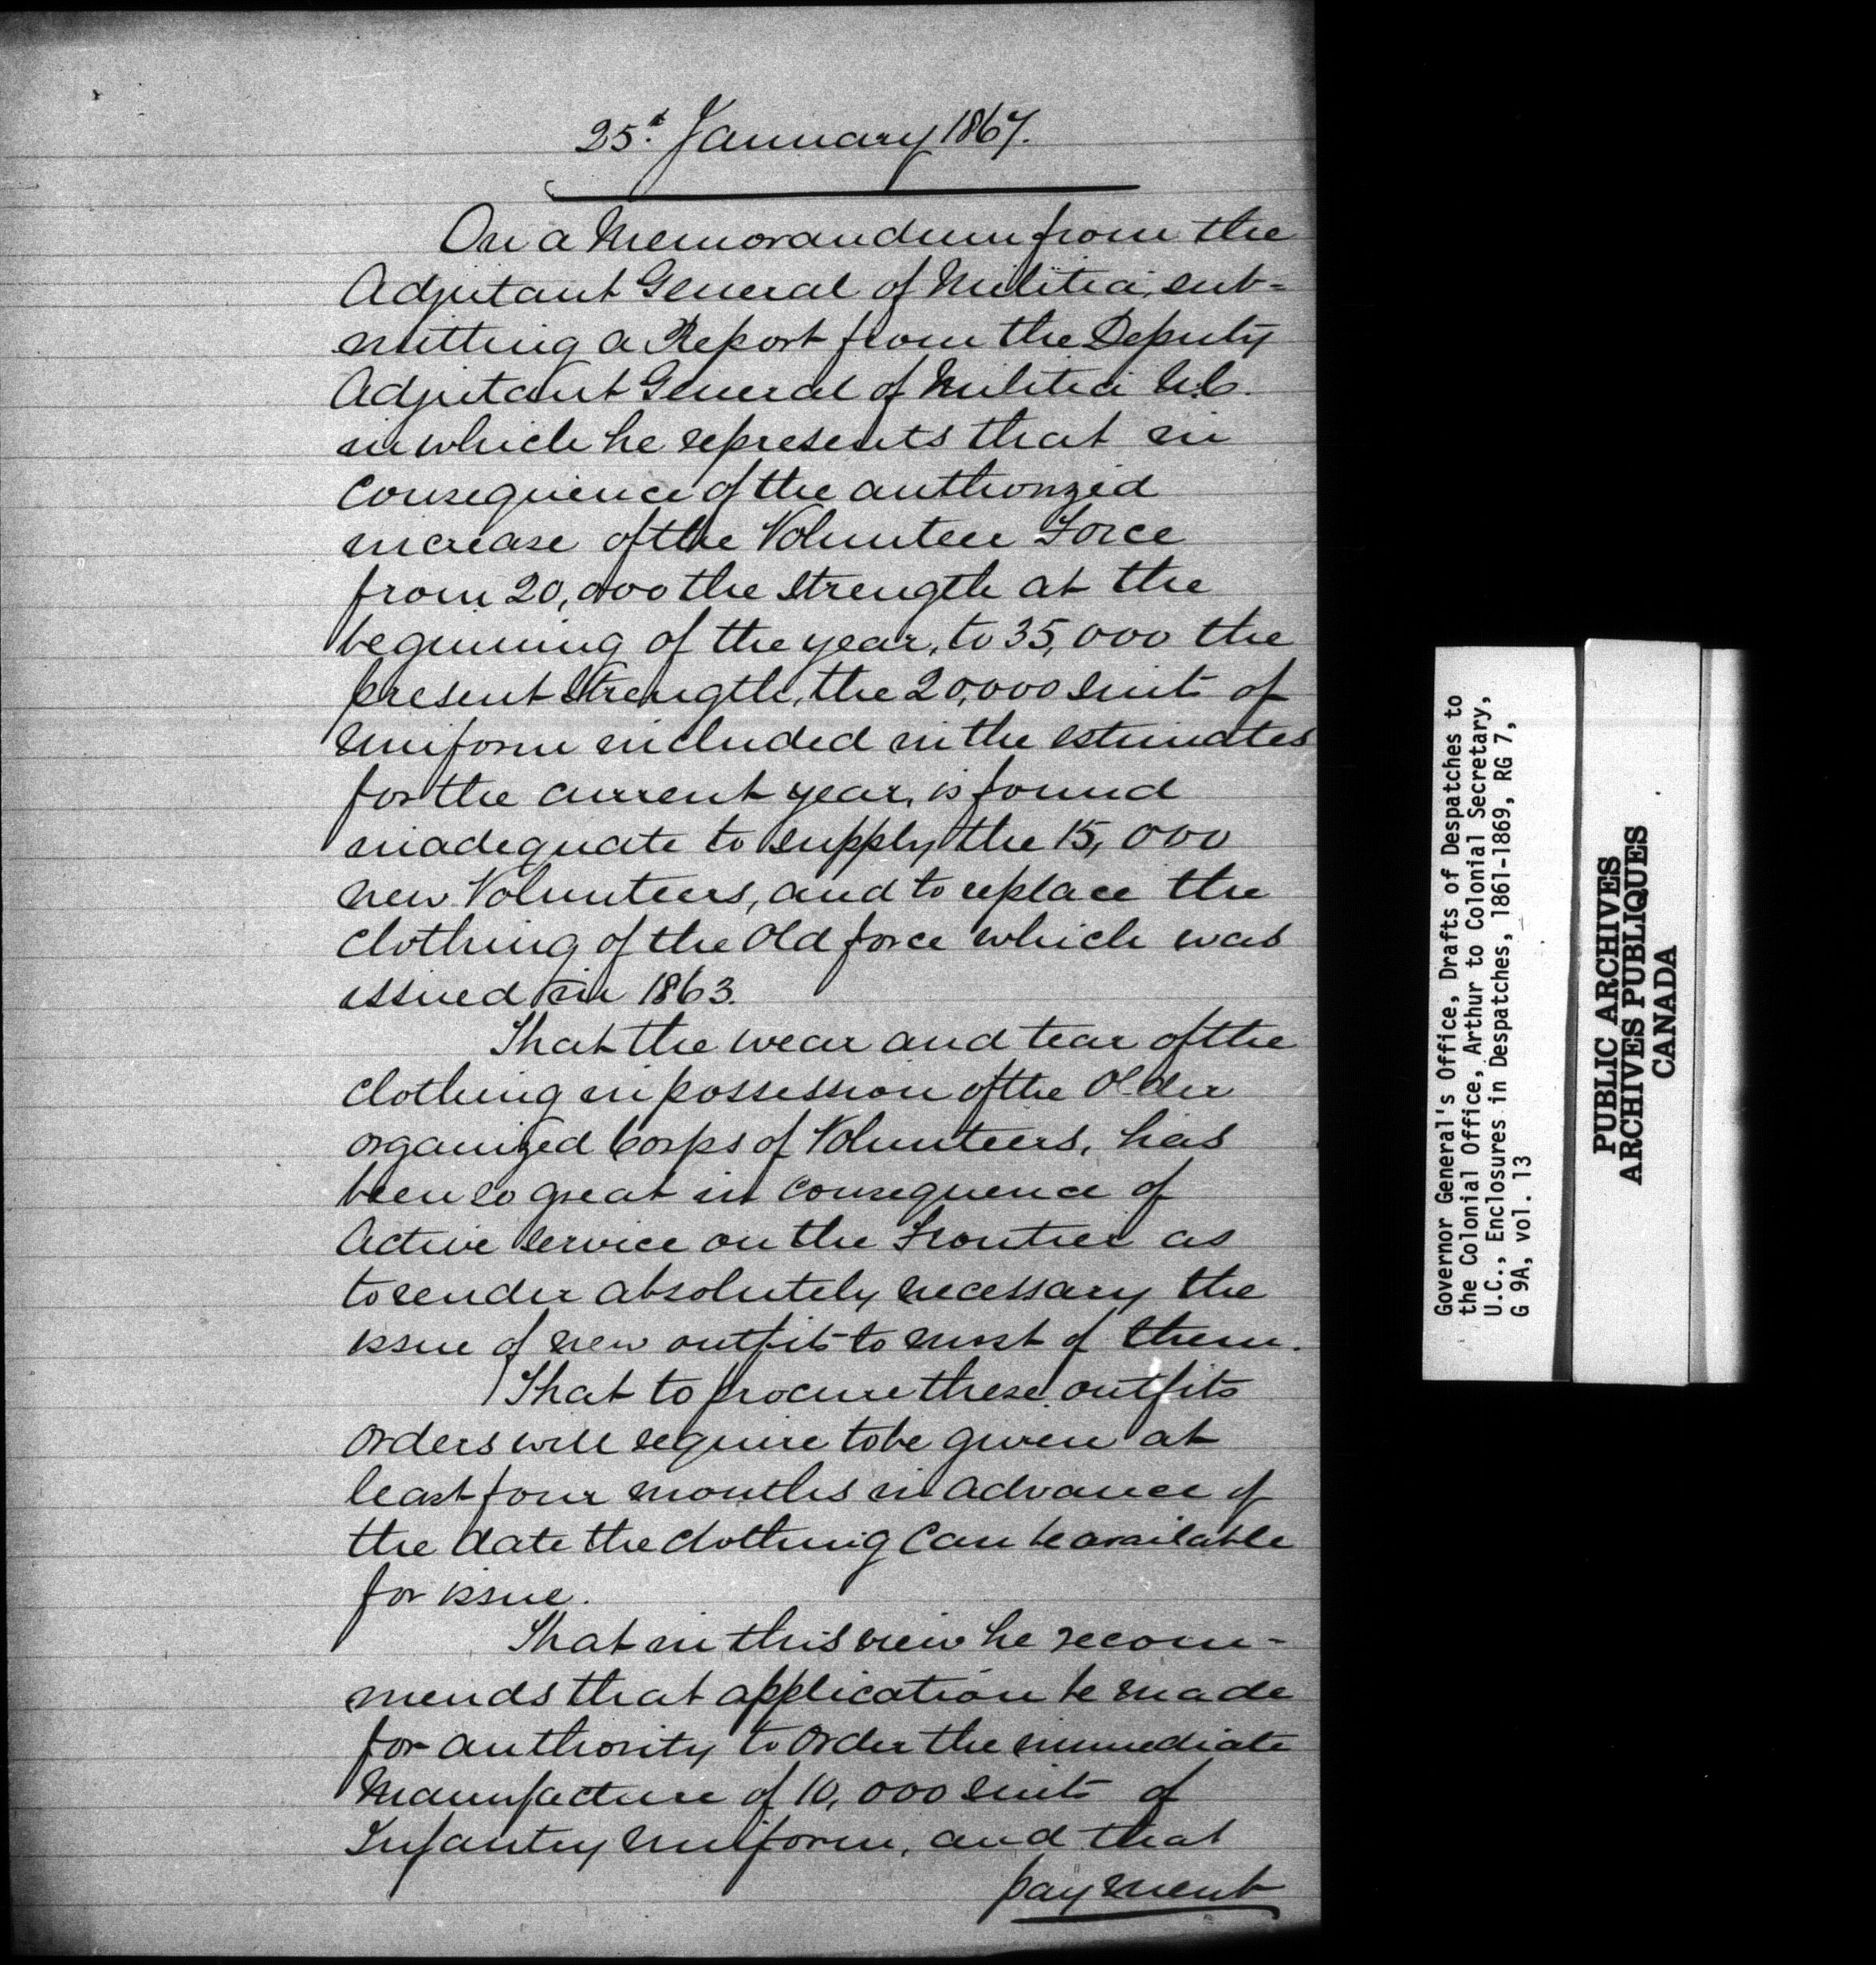 25th January 1867.
On a Memorandum from the
Adjutant General of Militia, sub=
mitting a Report from the Deputy
Adjutant General of Militia U.C.
in which he represents that in
consequence of the authorized
increase of the Volunteer Force
from 20,000 the strength at the
beginning of the year, to 35,000 the
present strength, the 20,000 suits of
uniform included in the estimates
for the current year, is found
inadequate to supply the 15,000
new Volunteers, and to replace the
clothing of the Old force which was
issued in 1863.
That the wear and tear of the
clothing in possession of the Older
organized Corps of Volunteers, has
been so great in consequence of
Active Service on the Frontier as
to render absolutely necessary the
issue of new outfits to most of them.
That to procure these outfits
orders will require to be given at
least four months in advance of
the date the clothing can be available
for issue.
That in this view he recom-
mends that application be made
for authority to order the immediate
Manufacture of 10,000 suits of
Infantry Uniform, and that
payment
Governor General's Office, Drafts of Despatches to
the Colonial Office, Arthur to Colonial Secretary,
U.C., Enclosures in Despatches, 1861-1869, RG 7,
G 9A, vol. 13
PUBLIC ARCHIVES
ARCHIVES PUBLIQUES
CANADA